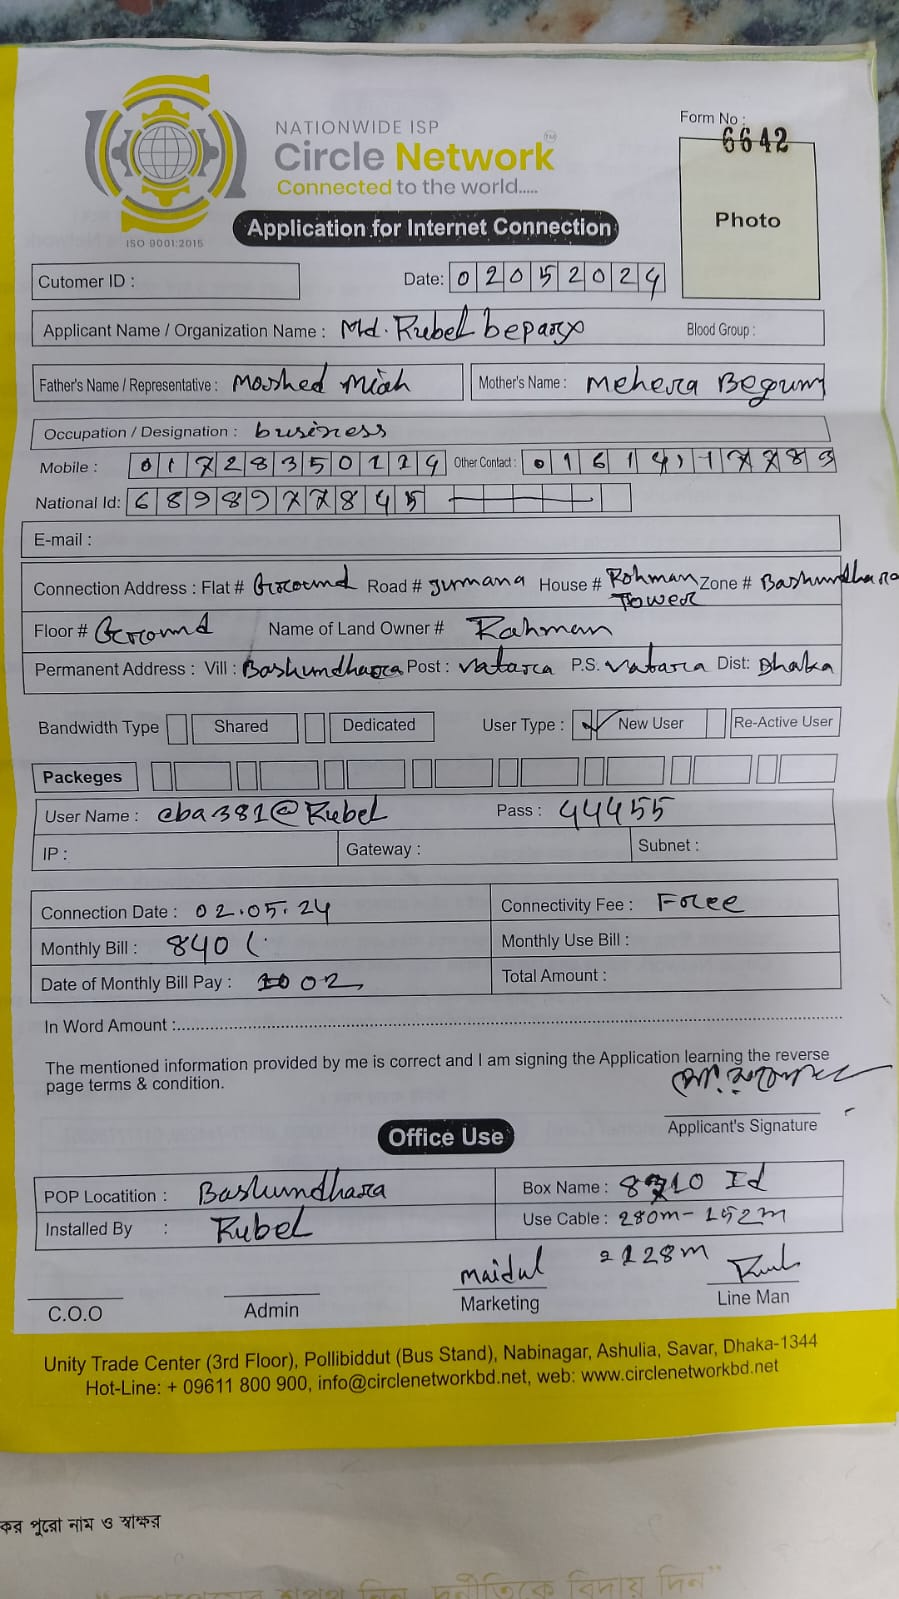 NATIONWIDE ISP
Circle Network TM
Connected to the world.....
ISO 9001:2015
Form No :
6642
Photo
Application for Internet Connection
Cutomer ID :
Date: 02052024
Applicant Name / Organization Name : Md. Rubel bepary Blood Group :
Father's Name / Representative : Morshed Miah Mother's Name : Mehera Begum
Occupation / Designation : business
Mobile : Other Contact :
National Id: 6898977845
E-mail :
Connection Address : Flat # Ground Road # Jumana House # Rohman Tower Zone # Bashundhara
Floor # Ground Name of Land Owner # Rahman
Permanent Address : Vill : Bashundhara Post : Vatara P.S. Vatara Dist: Dhaka
Bandwidth Type Shared Dedicated User Type : ✓ New User Re-Active User
Packeges
User Name : cba381@Rubel Pass : 44455
IP : Gateway : Subnet :
Connection Date : 02.05.24 Connectivity Fee : Free
Monthly Bill : 840 Monthly Use Bill :
Date of Monthly Bill Pay : 02 Total Amount :
In Word Amount :
The mentioned information provided by me is correct and I am signing the Application learning the reverse
page terms & condition.
Applicant's Signature
Office Use
POP Locatition : Bashundhara Box Name : Id
Installed By : Rubel Use Cable : 280m-152m
=128m
Maidul
C.O.O Admin Marketing Line Man
Unity Trade Center (3rd Floor), Pollibiddut (Bus Stand), Nabinagar, Ashulia, Savar, Dhaka-1344
Hot-Line: + 09611 800 900, info@circlenetworkbd.net, web: www.circlenetworkbd.net
পুরো নাম ও স্বাক্ষর
শপথ নিন, দুর্নীতিকে বিদায় দিন"